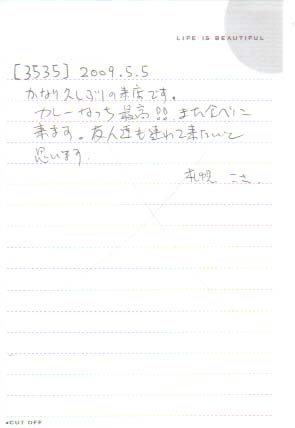 LIFE IS BEAUTIFUL
[3535] 2009.5.5
かなり久しぶりの来店です。
カレーなっち最高!! また食べに
来ます。友人達も連れて来たいと
思います.
札幌 こさ.
CUT OFF